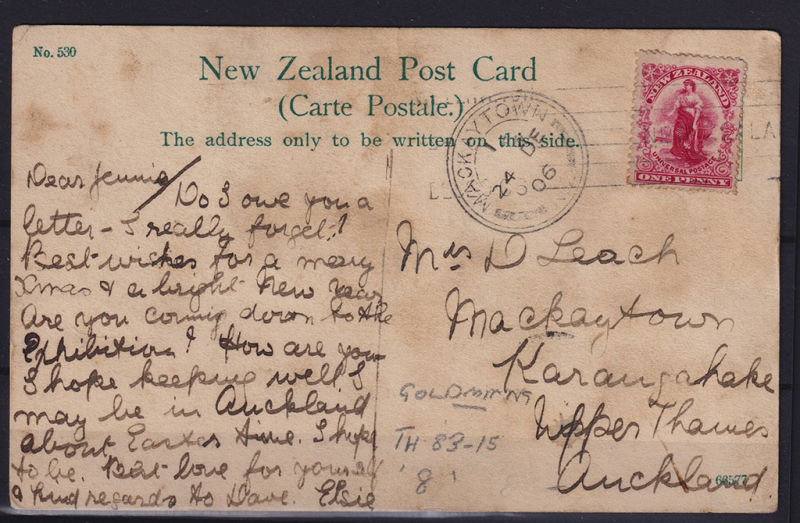 No. 530
New Zealand Post Card
(Carte Postale.)
The address only to be written on this side.
NEW ZEALAND
UNIVERSAL POSTAGE
ONE PENNY
MACKAYTOWN
24 DE
06
Dear Jennie/
Do I owe you a
letter - I really forget?
Best wishes for a merry
Xmas & a bright New Year
Are you coming down to the
Exhibition? How are you
I hope keeping well. I
may be in Auckland
about Easter time. I hope
to be. Best love for yourself
& kind regards to Dave. Elsie
Mrs D Leach
Mackaytown
Karangahake
Upper Thames
Auckland
GOLDMINING
TH 83-15
'8'
66577